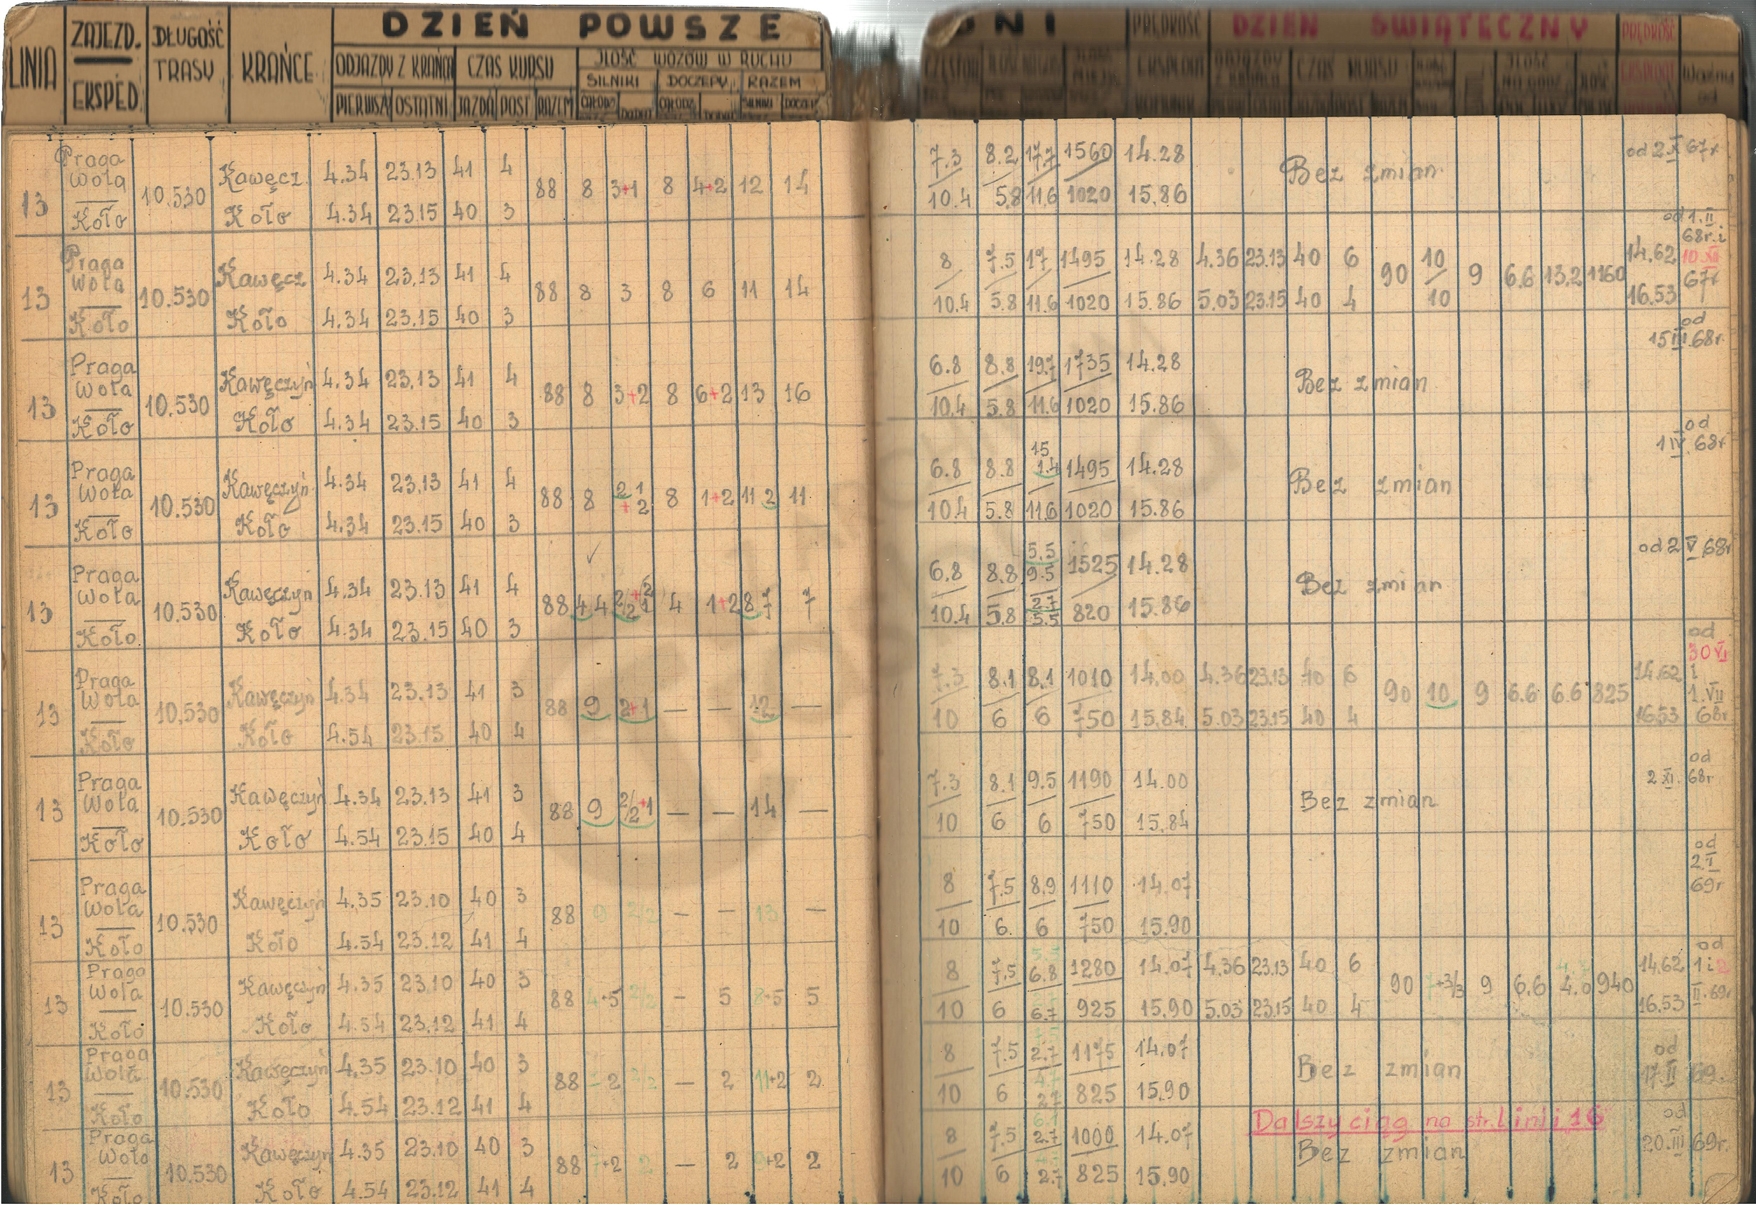 DZIEŃ POWSZE DNI
DZIEŃ ŚWIĄTECZNY
LINIA ZAJEZD. EKSPED. DŁUGOŚĆ TRASY KRAŃCE ODJAZDY Z KRAŃCA CZAS KURSU ILOŚĆ WOZÓW W RUCHU
SILNIKI DOCZEPY RAZEM
PIERWSZ OSTATNI JAZDA POST RAZEM
13 Praga Wola Koło 10.530 Kawęcz. 4.34 23.13 41 4 88 8 3+1 8 4+2 12 14 7.3 8.2 17.7 1560 14.28 Bez zmian od 2 X 67r
Koło 4.34 23.15 40 3 10.4 5.8 11.6 1020 15.86
13 Praga Wola Koło 10.530 Kawęcz 4.34 23.13 41 4 88 8 3 8 6 11 14 8 7.5 17 1495 14.28 4.36 23.13 40 6 90 10 9 6.6 13.2 1160 14.62 od 1.II 68r. i 10.XII 67r
Koło 4.34 23.15 40 3 10.4 5.8 11.6 1020 15.86 5.03 23.15 40 4 10 16.53
13 Praga Wola Koło 10.530 Kawęczyń 4.34 23.13 41 4 88 8 3+2 8 6+2 13 16 6.8 8.8 19.7 1735 14.28 Bez zmian od 15 III.68r.
Koło 4.34 23.15 40 3 10.4 5.8 11.6 1020 15.86
13 Praga Wola Koło 10.530 Kawęczyń 4.34 23.13 41 4 88 8 2 1 +2 8 1+2 11 2 11 6.8 8.8 15 1495 14.28 Bez zmian od 1 IV. 68r
Koło 4.34 23.15 40 3 10.4 5.8 11.6 1020 15.86
13 Praga Wola Koło 10.530 Kawęczyń 4.34 23.13 41 4 88 4 4 4 1+2 8 7 7 6.8 8.8 5.5 9.5 1525 14.28 Bez zmian od 2 V 68r
Koło 4.34 23.15 40 3 10.4 5.8 2.7 5.5 820 15.86
13 Praga Wola Koło 10.530 Kawęczyń 4.34 23.13 41 3 88 9 2+1 — — 12 — 7.3 8.1 8.1 1010 14.00 4.36 23.13 40 6 90 10 9 6.6 6.6 825 14.62 od 30 VI i 1.VII 68r
Koło 4.54 23.15 40 4 10 6 6 750 15.84 5.03 23.15 40 4 16.53
13 Praga Wola Koło 10.530 Kawęczyń 4.34 23.13 41 3 88 9 2/2+1 — — 14 — 7.3 8.1 9.5 1190 14.00 Bez zmian od 2 XI. 68r
Koło 4.54 23.15 40 4 10 6 6 750 15.84
13 Praga Wola Koło 10.530 Kawęczyń 4.35 23.10 40 3 88 9 2/2 — — 13 — 8 7.5 8.9 1110 14.07 od 2 I 69r
Koło 4.54 23.12 41 4 10 6. 6 750 15.90
13 Praga Wola Koło 10.530 Kawęczyń 4.35 23.10 40 3 88 4+5 2/2 — 5 8+5 5 8 7.5 6.8 1280 14.07 4.36 23.13 40 6 90 7+3/3 9 6.6 4.0 940 14.62 od 1 i 2 II.69r
Koło 4.54 23.12 41 4 10 6 6.7 925 15.90 5.03 23.15 40 4 16.53
13 Praga Wola Koło 10.530 Kawęczyń 4.35 23.10 40 3 88 2 2/2 — 2 11+2 2 8 7.5 2.7 1175 14.07 Bez zmian od 17.II 69.
Koło 4.54 23.12 41 4 10 6 2.7 825 15.90
Dalszy ciąg na str. Linii 16
13 Praga Wola Koło 10.530 Kawęczyń 4.35 23.10 40 3 88 7+2 2 — 2 +2 2 8 7.5 2.7 1000 14.07 Bez zmian od 20.III 69r.
Koło 4.54 23.12 41 4 10 6 2.7 825 15.90